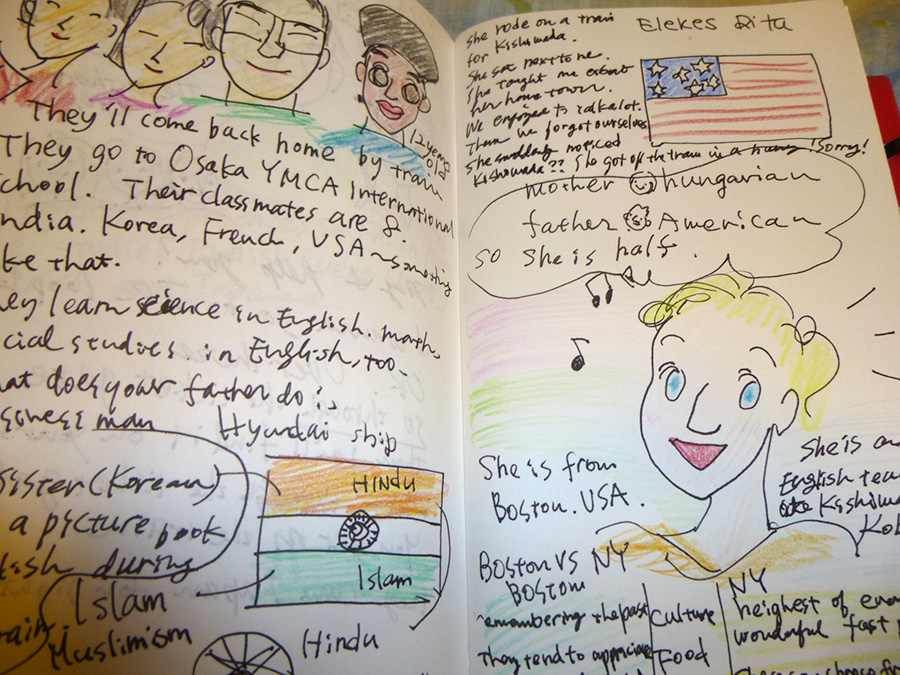 12 years old
They'll come back home by train
They go to Osaka YMCA International
chool. Their classmates are 8.
ndia. Korea, French, USA ~ something
ke that.
ey learn science in English. math,
cial studies. in English, too.
at does your father do?
siness man
Hyundai ship
Sister (Korean)
a picture book
lish during
rain
Islam
Muslimism
HINDU
Islam
Hindu
she rode on a train
for Kishiwada.
She sat next to me.
She taught me about
her home town.
We enjoyed to talk a lot.
Then we forgot ourselves
she suddenly noticed
Kishiwada?? She got off the train in a hurry! Sorry!
Elekes Rita
mother hungarian
father American
so she is half.
She is from
Boston. USA.
She is an
English tea
Kishiwa
Kob
Boston vs NY
Boston
remembering the past
They tend to appreciate
Culture
Food
NY
heighest of
wonderful fast